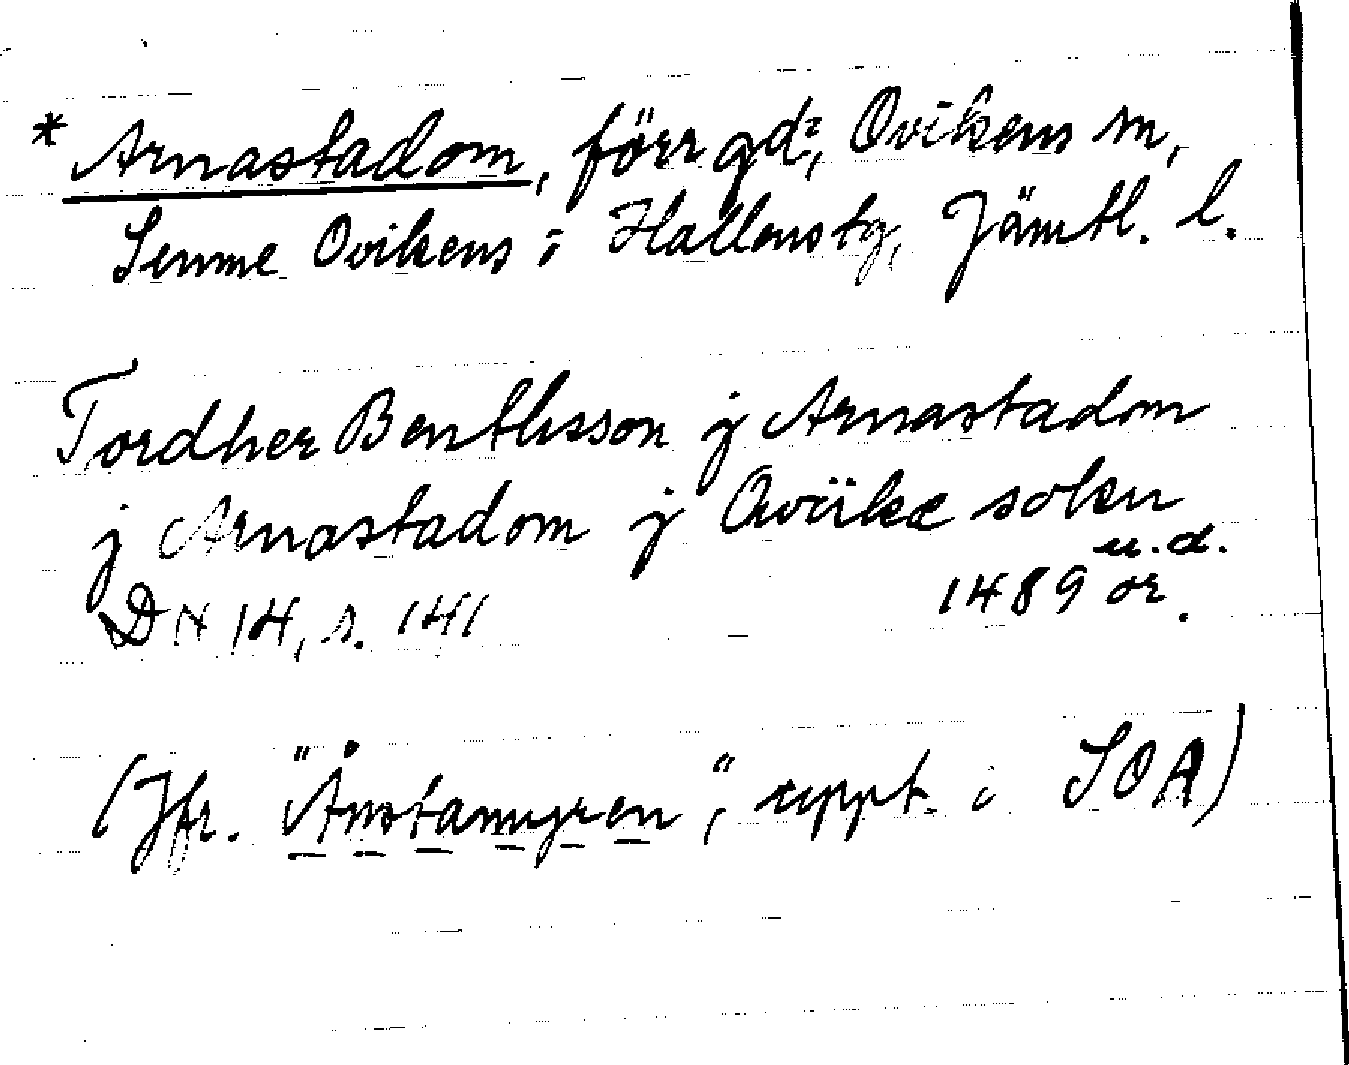 * Arnastadom, förr gd:, Ovikens sn,
Ovikens i Hallens tg, Jämtl. l.
Tordher Benthsson j Arnastadom
j Arnastadom j Owiike sokn
u.d.
DN 14, s. 141 1489 or.
(Jfr. "Ånstamyren", uppt. i SOA)